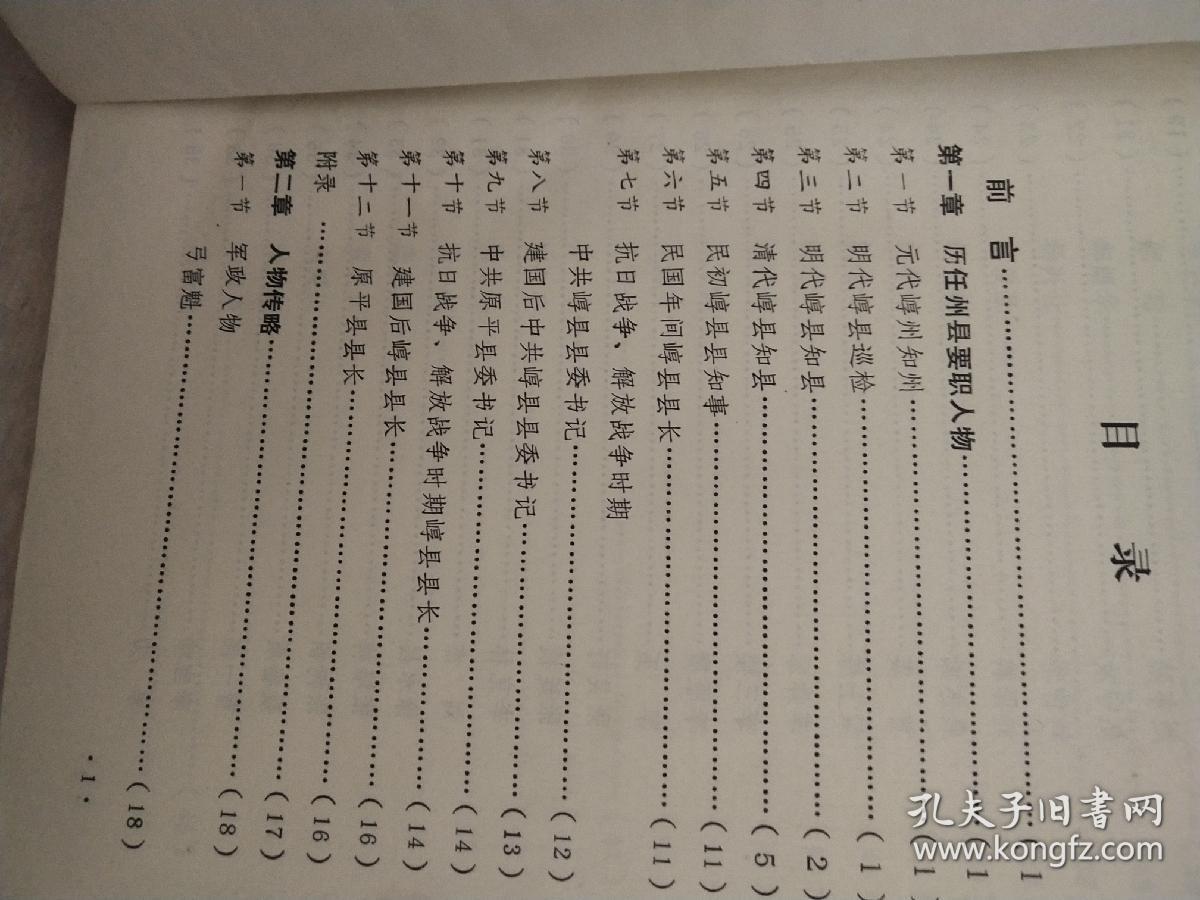 目 录
前 言……………………………………1
第一章 历任州县要职人物………………(1
第一节 元代崞州知州………………(1
第二节 明代崞县巡检………………(1)
第三节 明代崞县知县………………(2)
第四节 清代崞县知县………………(5)
第五节 民初崞县县知事………………(11)
第六节 民国年间崞县县长………………(11)
第七节 抗日战争、解放战争时期
中共崞县县委书记………………(12)
第八节 建国后中共崞县县委书记………………(13)
第九节 中共原平县委书记………………(14)
第十节 抗日战争、解放战争时期崞县县长………………(14)
第十一节 建国后崞县县长………………(16)
第十二节 原平县县长………………(16)
附录………………(17)
第二章 人物传略………………(18)
第一节 军政人物
弓富魁………………(18)
·1·
孔夫子旧书网
www.kongfz.com